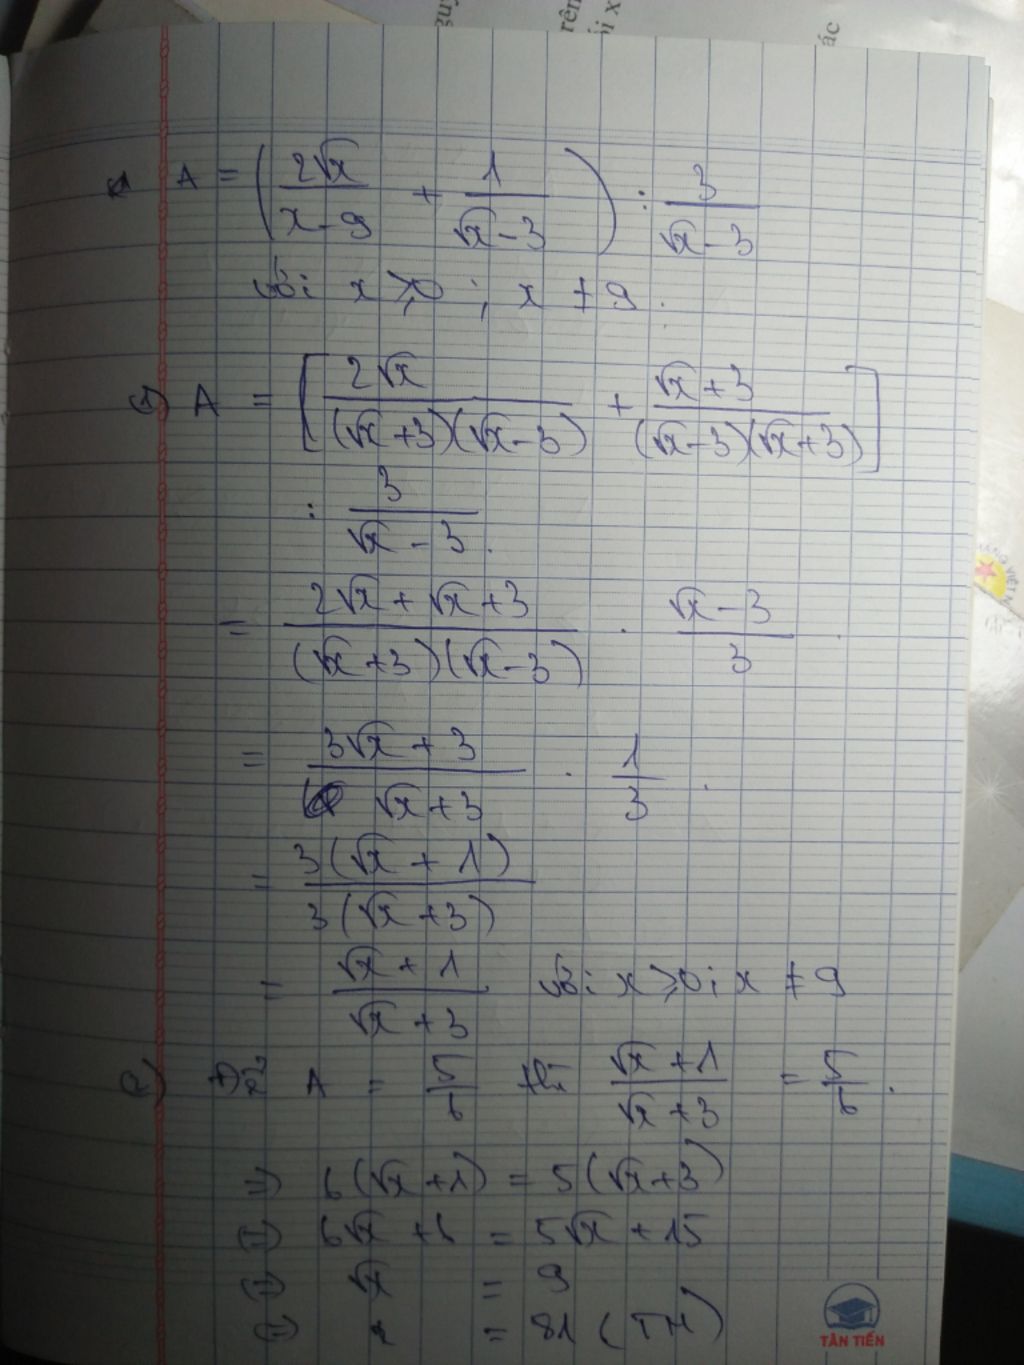 A = (2√x / x - 9 + 1 / √x - 3) : 3 / √x - 3
với x ≥ 0 ; x ≠ 9.
1) A = [2√x / (√x + 3)(√x - 3) + √x + 3 / (√x - 3)(√x + 3)]
: 3 / √x - 3.
= 2√x + √x + 3 / (√x + 3)(√x - 3) . √x - 3 / 3
= 3√x + 3 / √x + 3 . 1 / 3
= 3(√x + 1) / 3(√x + 3)
= √x + 1 / √x + 3 với x ≥ 0 ; x ≠ 9
2) Để A = 5/6 thì √x + 1 / √x + 3 = 5/6.
=) 6(√x + 1) = 5(√x + 3)
(=) 6√x + 6 = 5√x + 15
(=) √x = 9
(=) x = 81 (TM)
TÂN TIẾN
ác